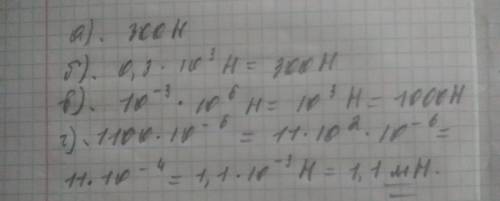 а). 300 Н
б). 0,3 · 10³ Н = 300 Н
в). 10⁻³ · 10⁶ Н = 10³ Н = 1000 Н
г). 1100 · 10⁻⁶ = 11 · 10² · 10⁻⁶ =
11 · 10⁻⁴ = 1,1 · 10⁻³ Н = 1,1 мН.